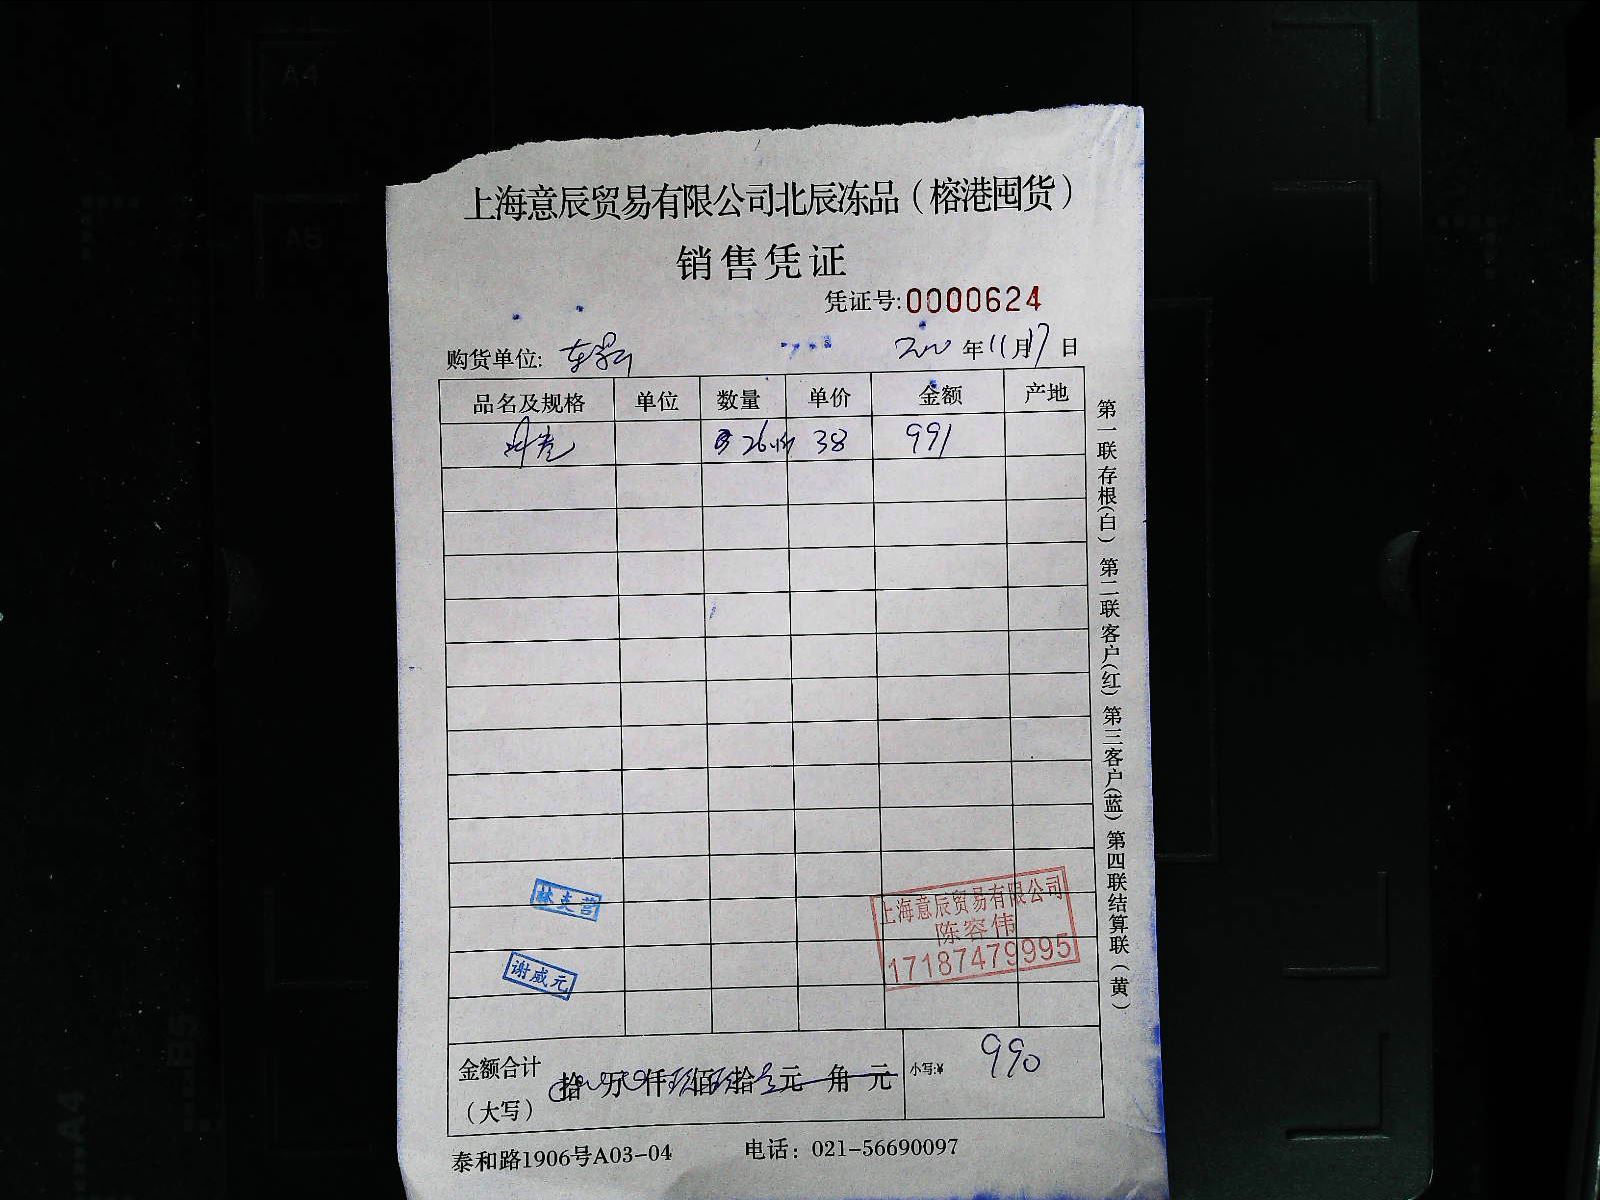 上海意辰贸易有限公司北辰冻品（榕港囤货）
销售凭证
凭证号:0000624
购货单位: 年11月17日
品名及规格 单位 数量 单价 金额 产地
38 991
第一联存根(白) 第二联客户(红) 第三客户(蓝) 第四联结算联(黄)
林克营
谢威元
上海意辰贸易有限公司
陈容伟
17187479995
金额合计（大写） 拾 万 仟 佰 拾 元 角 元 小写:¥ 990
泰和路1906号A03-04 电话：021-56690097
A4
A5
B5
A4